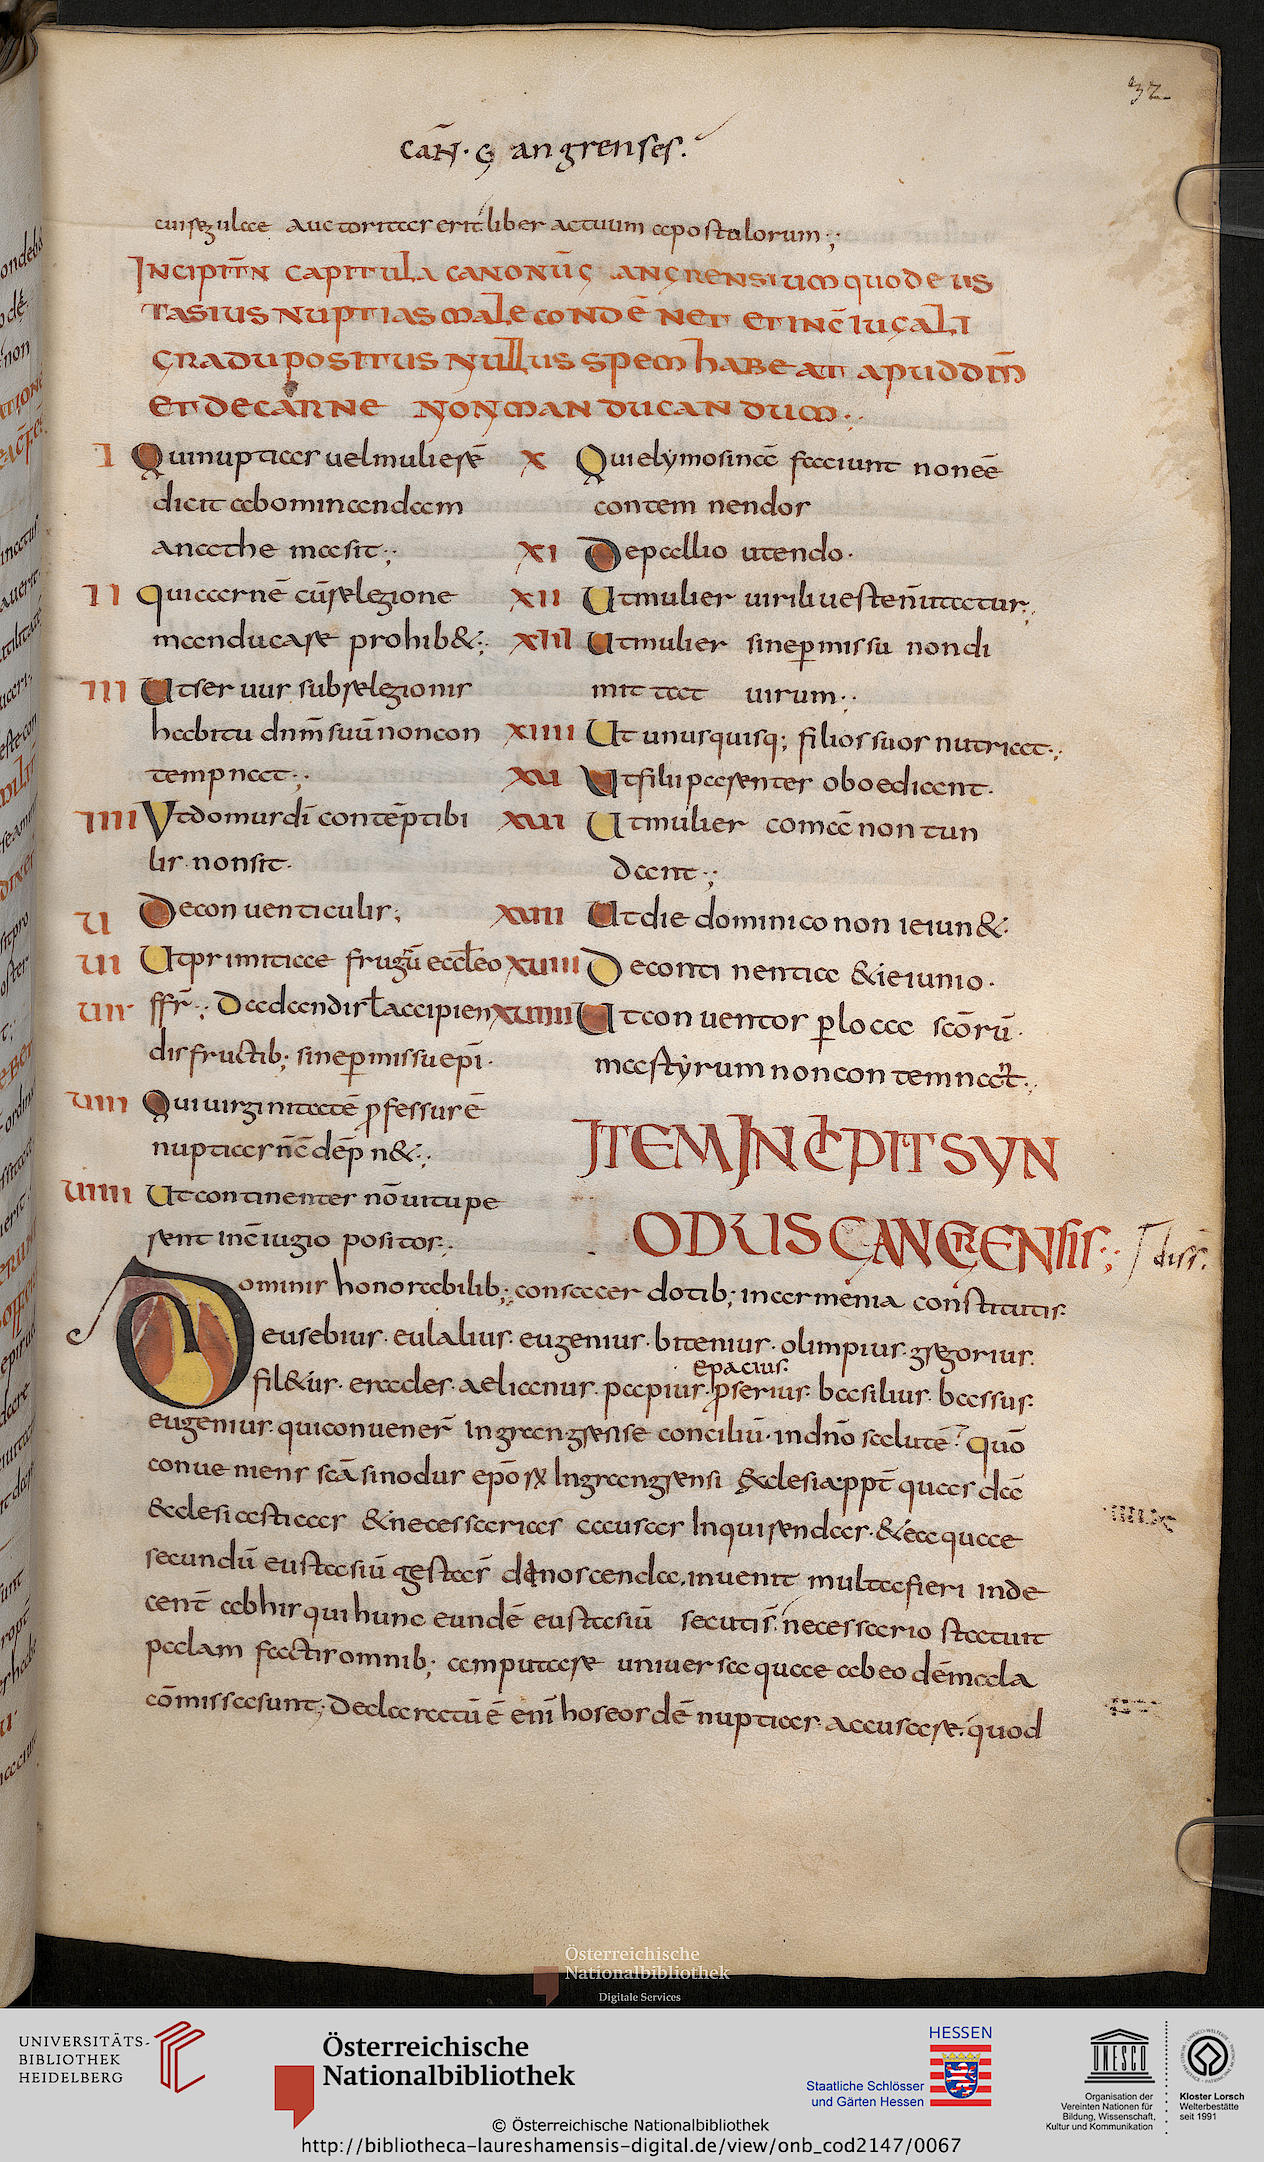 32
CAÑ· G angrenses·
cui regulae auctoritas erit liber actuum apostolorum·;
INCIPIUÑ CAPITULA CANONŪ GANGRENSIUM QUOD EUS
TASIUS NUPTIAS MALE CONDĒNET ET INCŌIUGALI
GRADU POSITUS NULLUS SPEM HABEAT APUD DM̄
ET DE CARNE NON MANDUCANDUM·.
I Qui nuptias uel mulierē
dicit abominandam
anathema sit·;
II Qui carnē cū relegione
manducare prohib&·;
III Ut seruus sub relegionis
habitu dnm̄ suū non con
tempnat·;
IIII Ut domus dī contēptibi
lis non sit·
U De conuenticulis;
UI Ut primitiae frugū eccleo
UII ffr̄·; Daedandis ł accipien
dis fructib; sine p̄missu epī·
UIII Qui uirginitatē p̄fessus ē
nuptias nē dēpn&·;
UIIII Ut continentes nō uitupe
rent in cīugio positos·.
X Qui elymosinā faciunt non eē
contemnendos
XI De pallio utendo·
XII Ut mulier uirili ueste ñ utatur·.
XIII Ut mulier sine p̄missu non di
mittat uirum·.
XIIII Ut unusquisq; filios suos nutriat·;
XU Ut filii parentes oboediant·
XUI Ut mulier comā non tun
deat·;
XUII Ut die dominico non ieiun&·
XUIII De continentia & ieiunio·
XUIIII Ut conuentos p̄ loca scōrū·
martyrum non contemnat·.
ITEM INCIPIT SYN
ODUS GANGRENSIS·;
Dominis honorabilib; consacerdotib; in armenia constitutis·
eusebius· eulalius· eugenius· bitenius· olimpius· gregorius·
Epacius·
fil&us· eracles· aelianus· papius· p̄serius· basilius· bassus·
eugenius· qui conuener̄ in grangrense conciliū· in dnō salutē· Quō
conueniens scā sinodus epōrx In grangrensi &clesia ppt̄ quas dā
&clesiasticas & necessarias causas Inquirendas· & ea quae
secundū eustasiū gesta sr̄ dinoscenda, inuenit multa fieri inde
cent̄ ab his qui hunc eundē eustasiū secuti s̄· necessario statuit
palam factis omnib; amputare uniuersa quae ab eo dē mala
cōmissa sunt; Declaratū ē enī hos eosdē nuptias accusare· quod
Österreichische
Nationalbibliothek
Digitale Services
UNIVERSITÄTS-
BIBLIOTHEK
HEIDELBERG
Österreichische
Nationalbibliothek
HESSEN
Staatliche Schlösser
und Gärten Hessen
UNESCO
Organisation der
Vereinten Nationen für
Bildung, Wissenschaft,
Kultur und Kommunikation
Kloster Lorsch
Welterbestätte
seit 1991
© Österreichische Nationalbibliothek
http://bibliotheca-laureshamensis-digital.de/view/onb_cod2147/0067